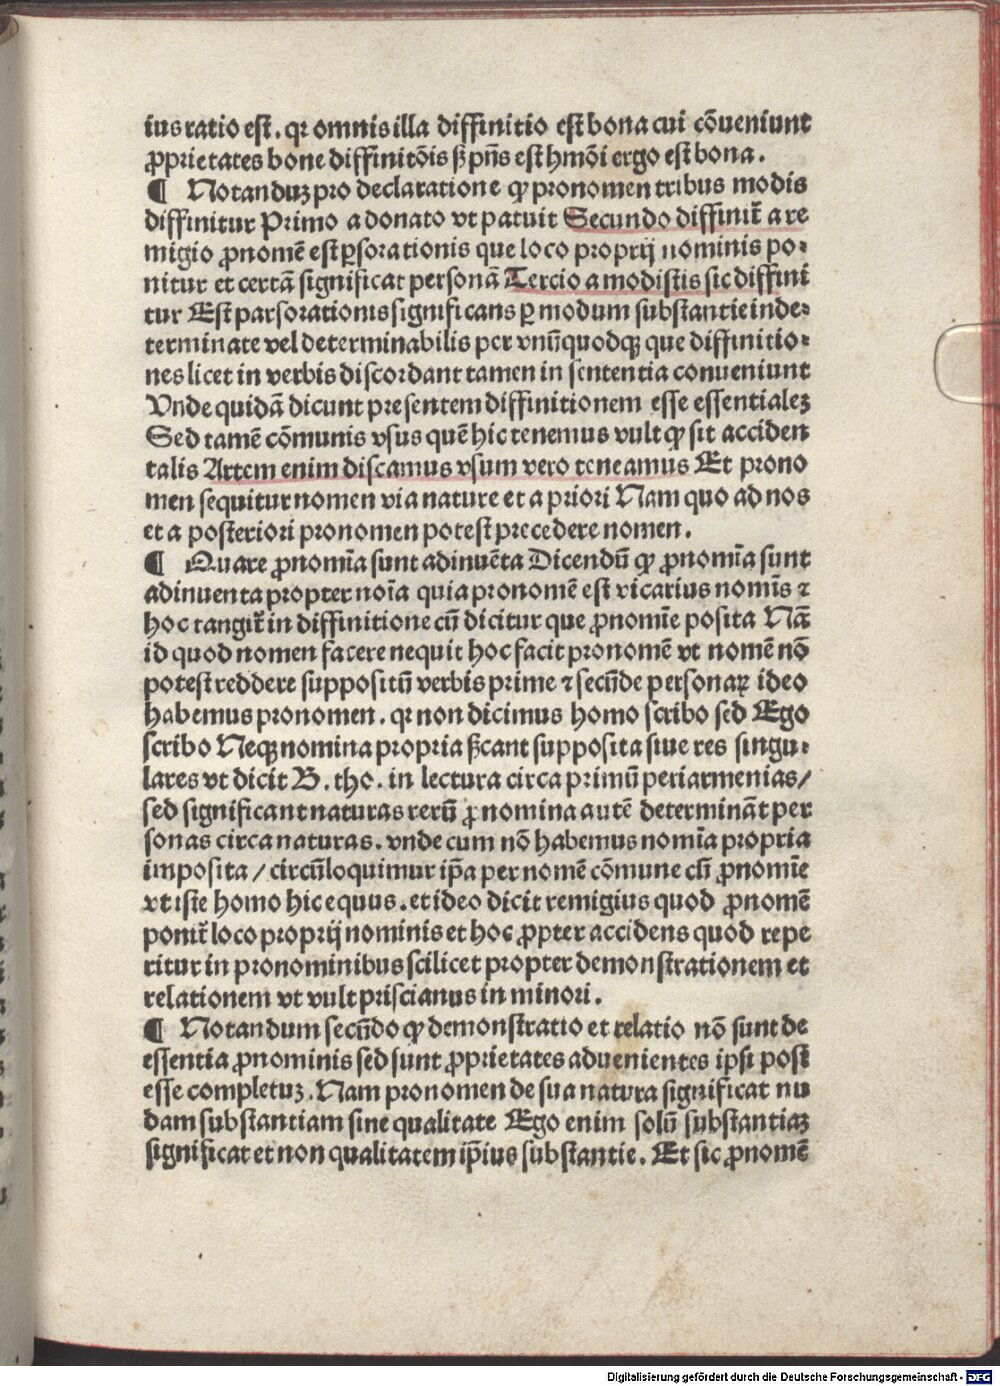 ius ratio est. qꝛ omnis illa diffinitio est bona cui cōueniunt
ꝓprietates bone diffinitōis sꝫ pn̄s est hmōi ergo est bona.
¶ Notanduꝫ pro declaratione ꝙ pronomen tribus modis
diffinitur Primo a donato vt patuit Secundo diffinit̄ a re
migio ꝓnomē est ꝑs orationis que loco proprij nominis po⸗
nitur et certā significat personā Tercio a modistis sic diffini
tur Est pars orationis significans ꝑ modum substantie inde⸗
terminate vel determinabilis per vnūquodqꝫ que diffinitio⸗
nes licet in verbis discordant tamen in sententia conueniunt
Vnde quidā dicunt presentem diffinitionem esse essentialeꝫ
Sed tamē cōmunis vsus quē hic tenemus vult ꝙ sit acciden
talis Artem enim discamus vsum vero teneamus Et prono
men sequitur nomen via nature et a priori Nam quo ad nos
et a posteriori pronomen potest precedere nomen.
¶ Quare ꝓnomīa sunt adinuēta Dicendū ꝙ ꝓnomīa sunt
adinuenta propter noīa quia pronomē est vicarius nomīs ⁊
hoc tangit̄ in diffinitione cū dicitur que ꝓnomīe posita Nā
id quod nomen facere nequit hoc facit pronomē vt nomē nō
potest reddere suppositū verbis prime ⁊ secūde personaꝝ ideo
habemus pronomen. qꝛ non dicimus homo scribo sed Ego
scribo Neqꝫ nomina propria sꝫcant supposita siue res singu⸗
lares vt dicit B. tho. in lectura circa primū periarmenias/
sed significant naturas rerū ꝓnomina autē determināt per
sonas circa naturas. vnde cum nō habemus nomīa propria
imposita / circūloquimur ip̄a per nomē cōmune cū ꝓnomīe
vt iste homo hic equus. et ideo dicit remigius quod ꝓnomē
ponit̄ loco proprij nominis et hoc ꝓpter accidens quod repe
ritur in pronominibus scilicet propter demonstrationem et
relationem vt vult priscianus in minori.
¶ Notandum secūdo ꝙ demonstratio et relatio nō sunt de
essentia ꝓnominis sed sunt ꝓprietates aduenientes ipsi post
esse completuꝫ. Nam pronomen de sua natura significat nu
dam substantiam sine qualitate Ego enim solū substantiaꝫ
significat et non qualitatem ip̄ius substantie. Et sic ꝓnomē
Digitalisierung gefördert durch die Deutsche Forschungsgemeinschaft - DFG